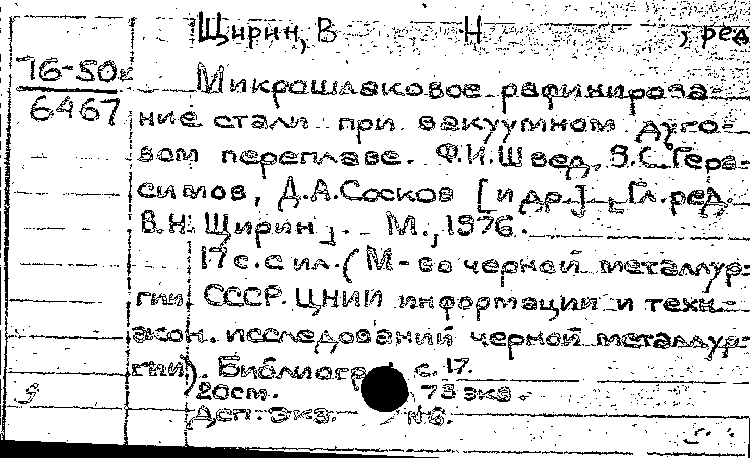 Щирин, В Н , ред
76-50к
6467
Микрошлаковое рафинирова-
ние стали при вакуумном дуго-
вом переплаве. Ф.И.Швед, В.С.Гера-
симов, Д.А.Сосков [и др.] [Гл.ред.
В.Н. Щирин]. - М., 1976.
17 с. с ил. (М-во черной металлур-
гии СССР. ЦНИИ информации и техн.-
экон. исследований черной металлур-
гии). Библиогр. с. 17.
20см. 75 экз.
Деп. экз. № 6.